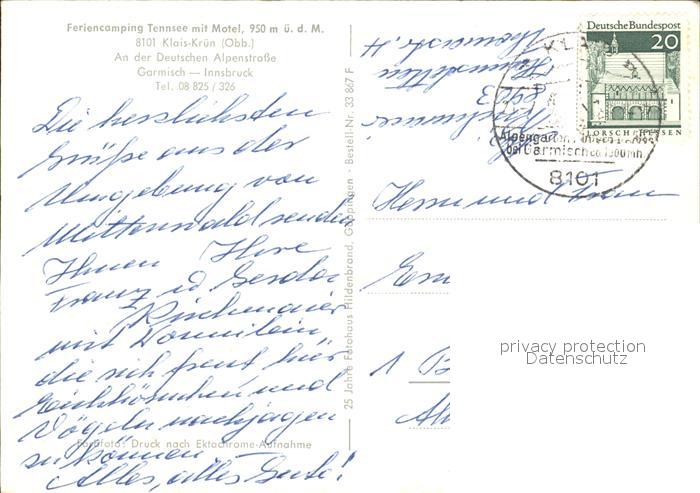 Feriencamping Tennsee mit Motel, 950 m ü. d. M.
8101 Klais-Krün (Obb.)
An der Deutschen Alpenstraße
Garmisch — Innsbruck
Tel. 08 825 / 326
Die herzlichsten
Grüße aus der
Umgebung von
Mittenwald senden
Ihnen Ihre
Franz u
Kirchmaier
mit
die sich freut hier
Eichhörnchen und
Vögeln nachjagen
zu können.
Alles, alles Gute!
Farbfoto: Druck nach Ektachrome-Aufnahme
25 Jahre Fotohaus Hildenbrand, Göppingen - Bestell-Nr. 33 867 F
Deutsche Bundespost
20
LORSCH/HESSEN
KLAIS
Alpengarten
bei Garmisch ca. 1000 m
8101
Herrn und Frau
1 B
privacy protection
Datenschutz